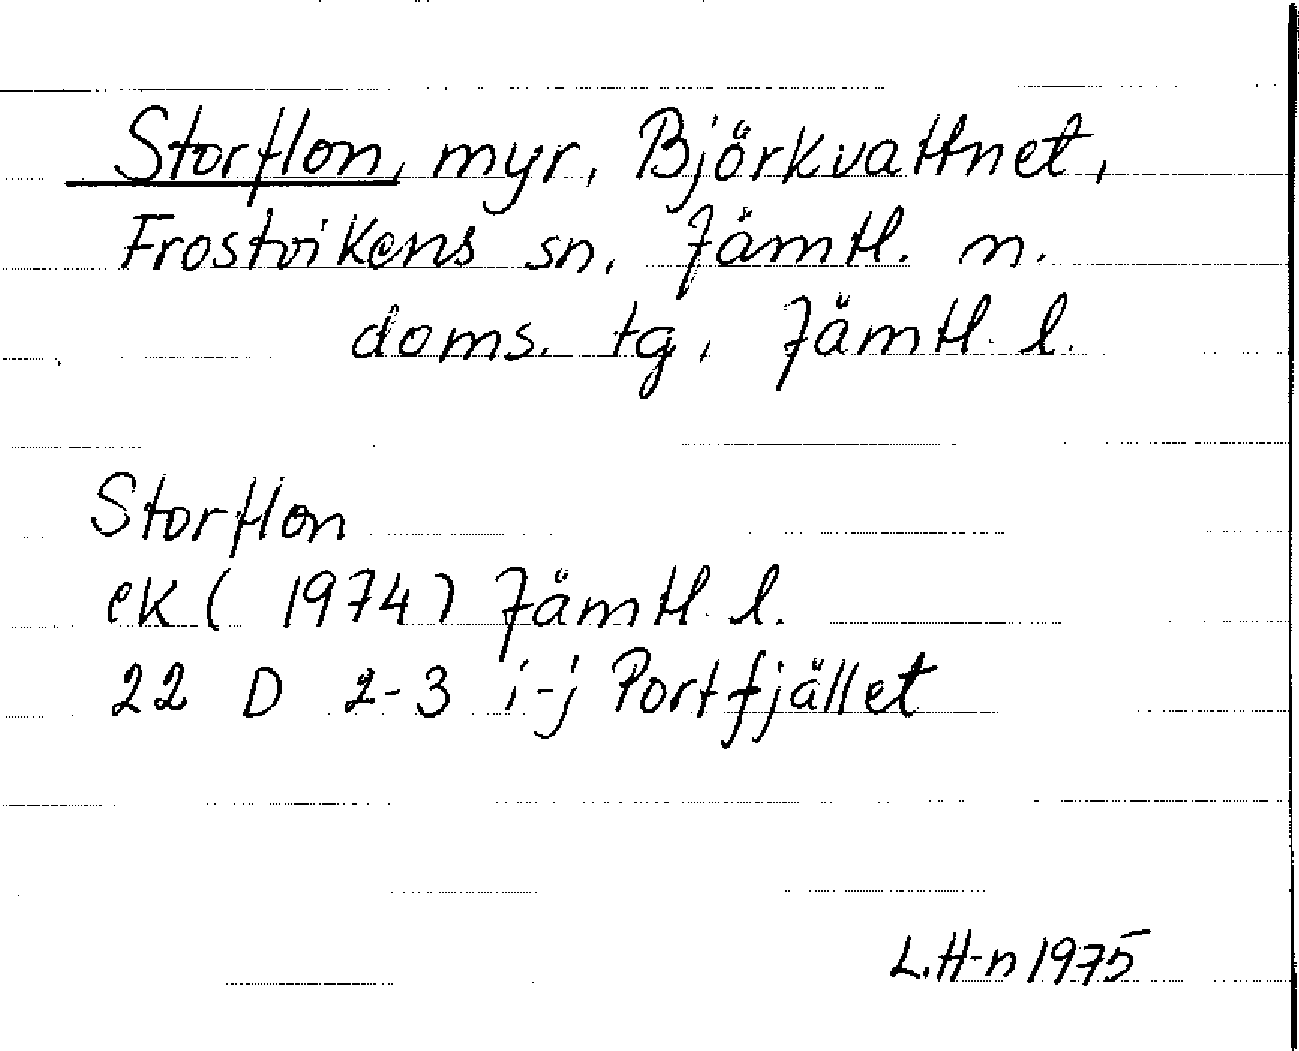 Storflon, myr, Björkvattnet,
Frostvikens sn, Jämtl. n.
doms. tg, Jämtl. l.
Storflon
ek (1974) Jämtl. l.
22 D 2-3 i-j Portfjället
L.H-n 1975